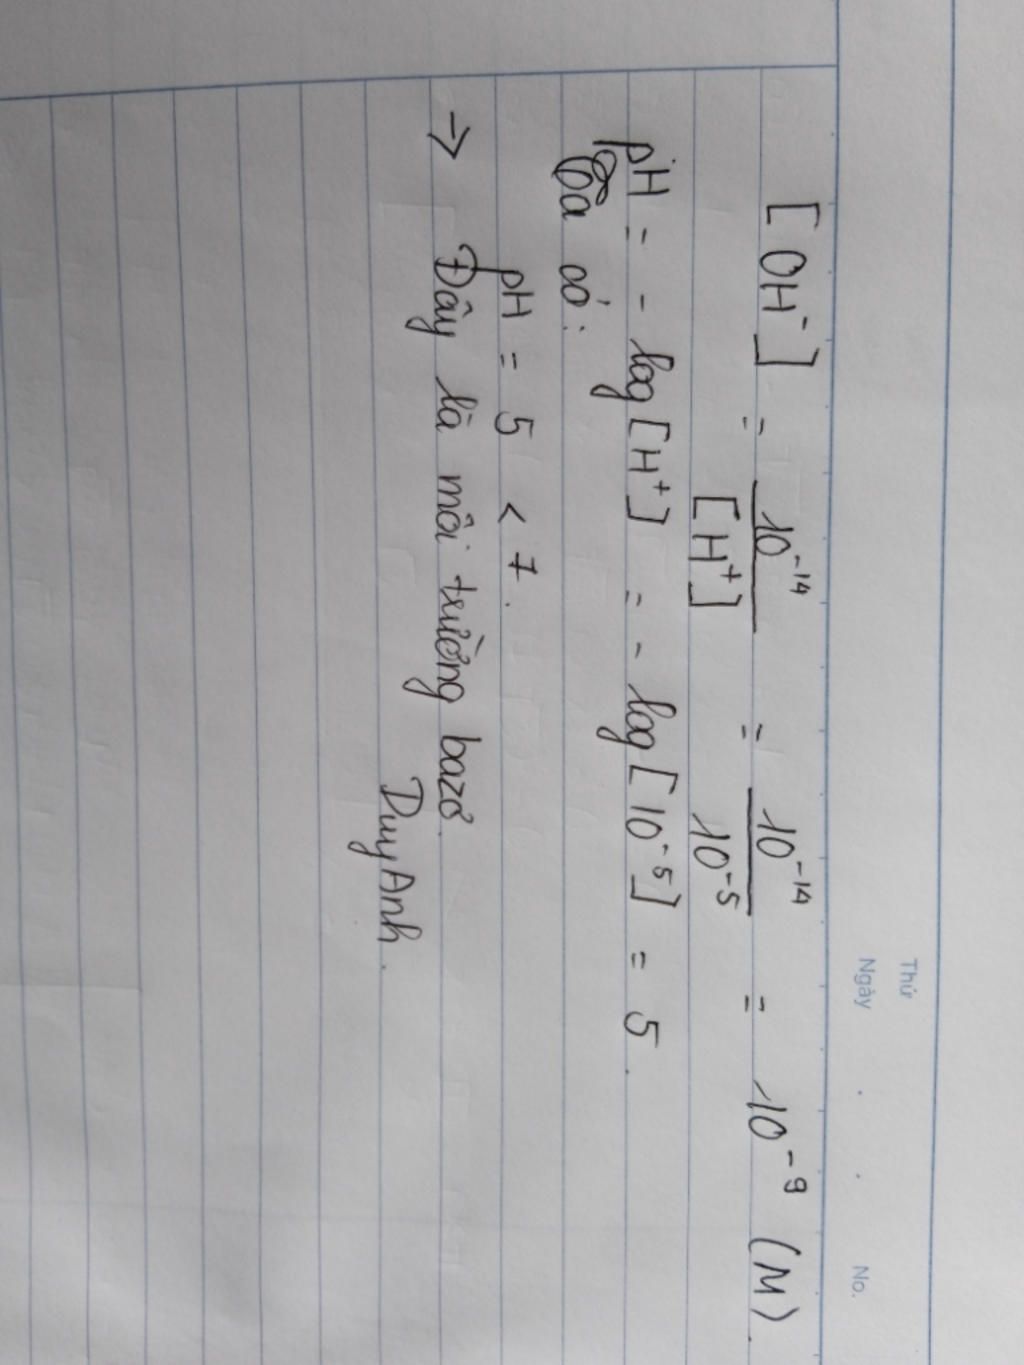 Thứ
Ngày . . No.
[OH⁻] = 10⁻¹⁴ / [H⁺] = 10⁻¹⁴ / 10⁻⁵ = 10⁻⁹ (M).
pH = - log [H⁺] = - log [10⁻⁵] = 5.
Ta có:
pH = 5 < 7.
→ Đây là môi trường bazơ.
Duy Anh.